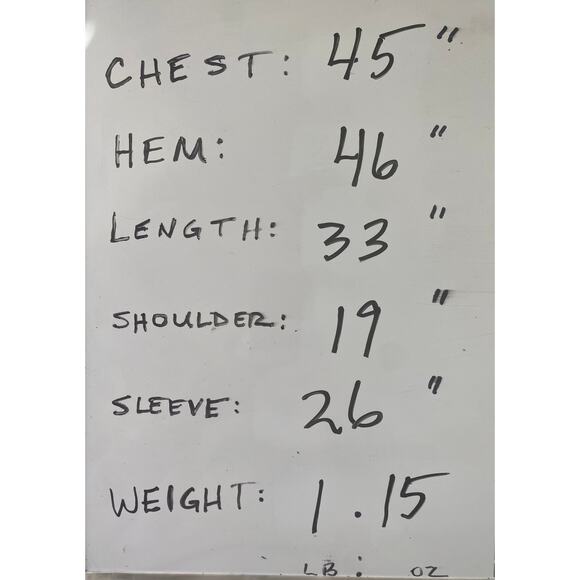 CHEST: 45"
HEM: 46"
LENGTH: 33"
SHOULDER: 19"
SLEEVE: 26"
WEIGHT: 1.15
LB : OZ